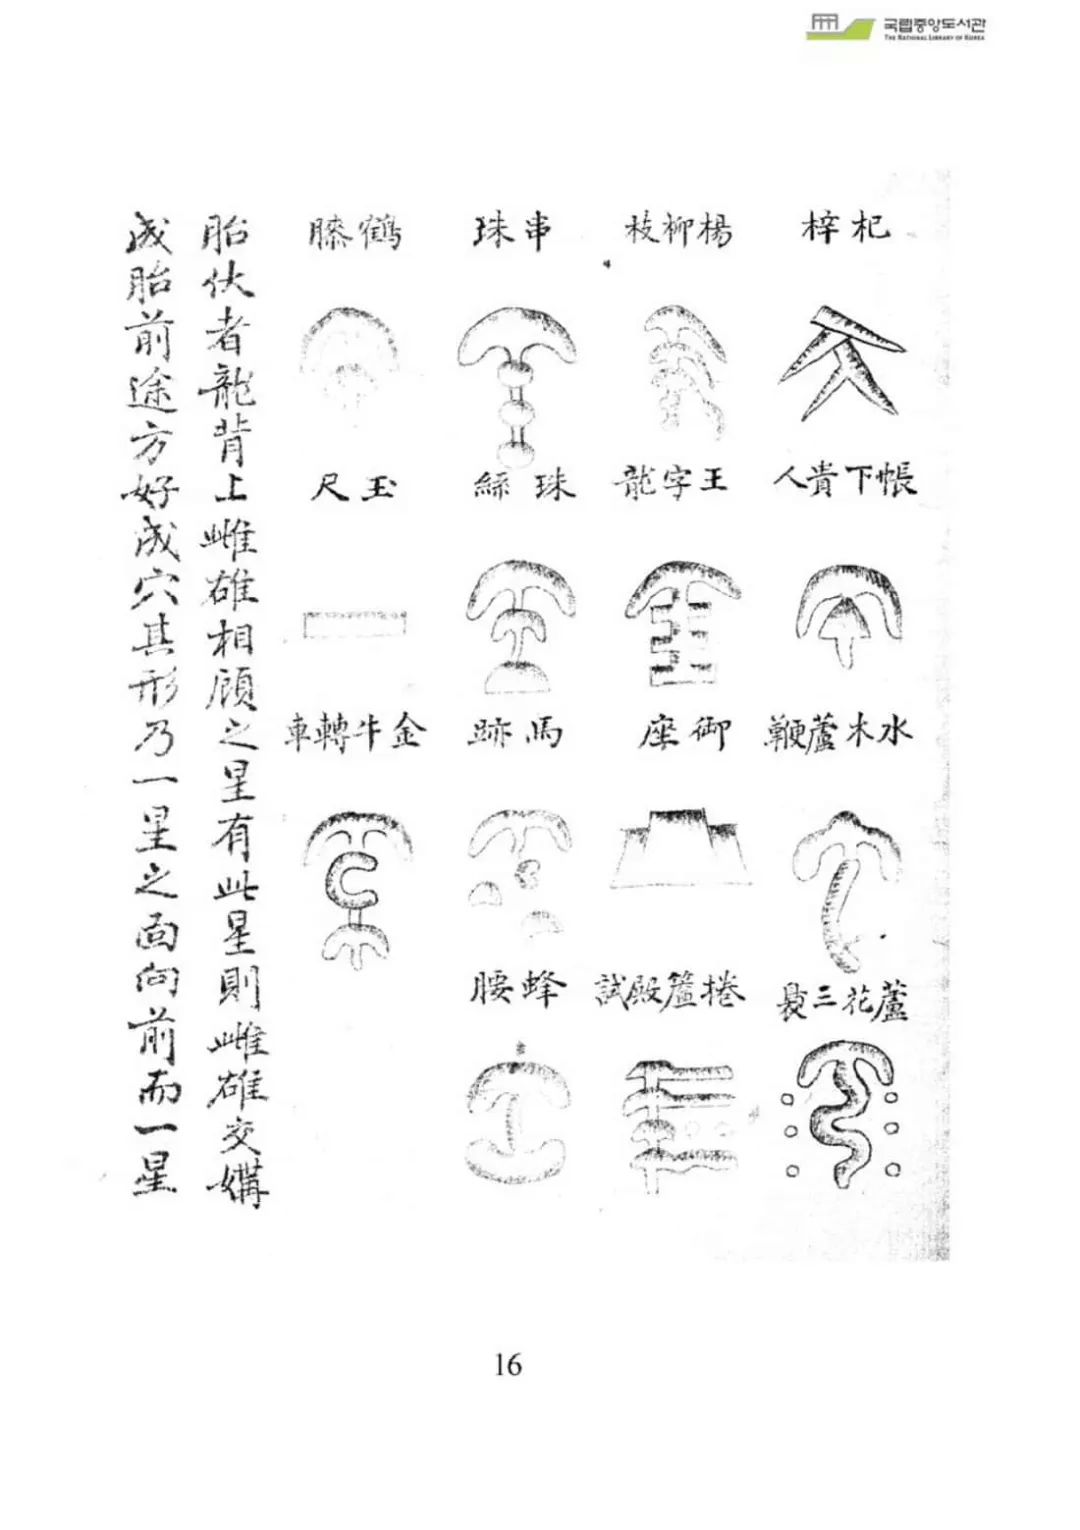 국립중앙도서관
THE NATIONAL LIBRARY OF KOREA
杞梓
帳下貴人
水木蘆鞭
蘆花三裊
楊柳枝
王字龍
御座
捲簾殿試
串珠
珠絲
馬跡
蜂腰
鶴膝
玉尺
金牛轉車
胎伏者龍背上雌雄相顧之星有此星則雌雄交媾
成胎前途方好成穴其形乃一星之面向前而一星
16